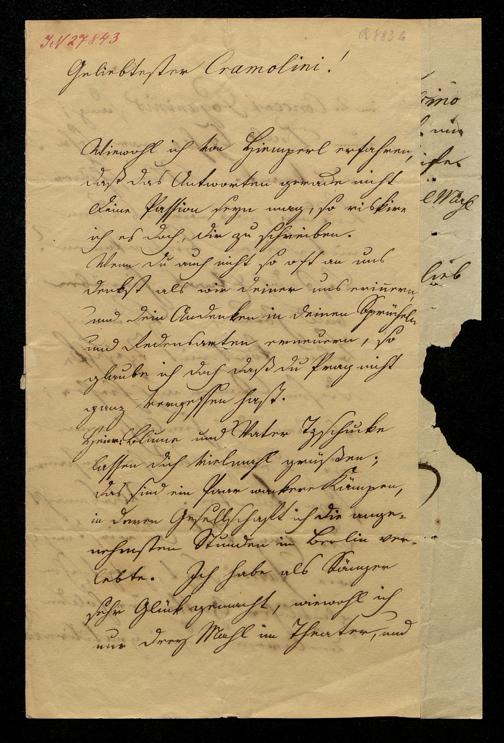 IN 27843
Geliebtester Cramolini!
Wiewohl ich von Hiemperl erfahren,
daß das Antworten gerade nicht
deine Passion seyn mag, so riskire
ich es doch, dir zu schreiben.
Wenn du auch nicht so oft an uns
denkst als wir deiner uns erinnern
und dein Andenken in deinen Sprücheln
und Redensarten erneuern, so
glaube ich doch daß du Prag nicht
ganz vergessen hast.
Heinr: Blume und Vater Tzschucke
lassen dich vielmahl grüßen;
das sind ein Paar wackere Kämpen,
in deren Gesellschaft ich die ange-
nehmsten Stunden in Berlin ver-
lebte. Ich habe als Sänger
sehr Glück gemacht, wiewohl ich
nur drey Mahl im Theater, und